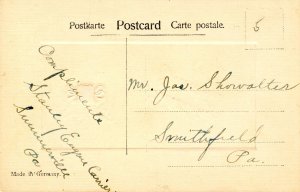 Postkarte Postcard Carte postale.
5
Compliments
Stanley Eugene Carrier
Summerville
Pa
Mr. Jas. Showalter
Smithfield
Pa.
Made in Germany.